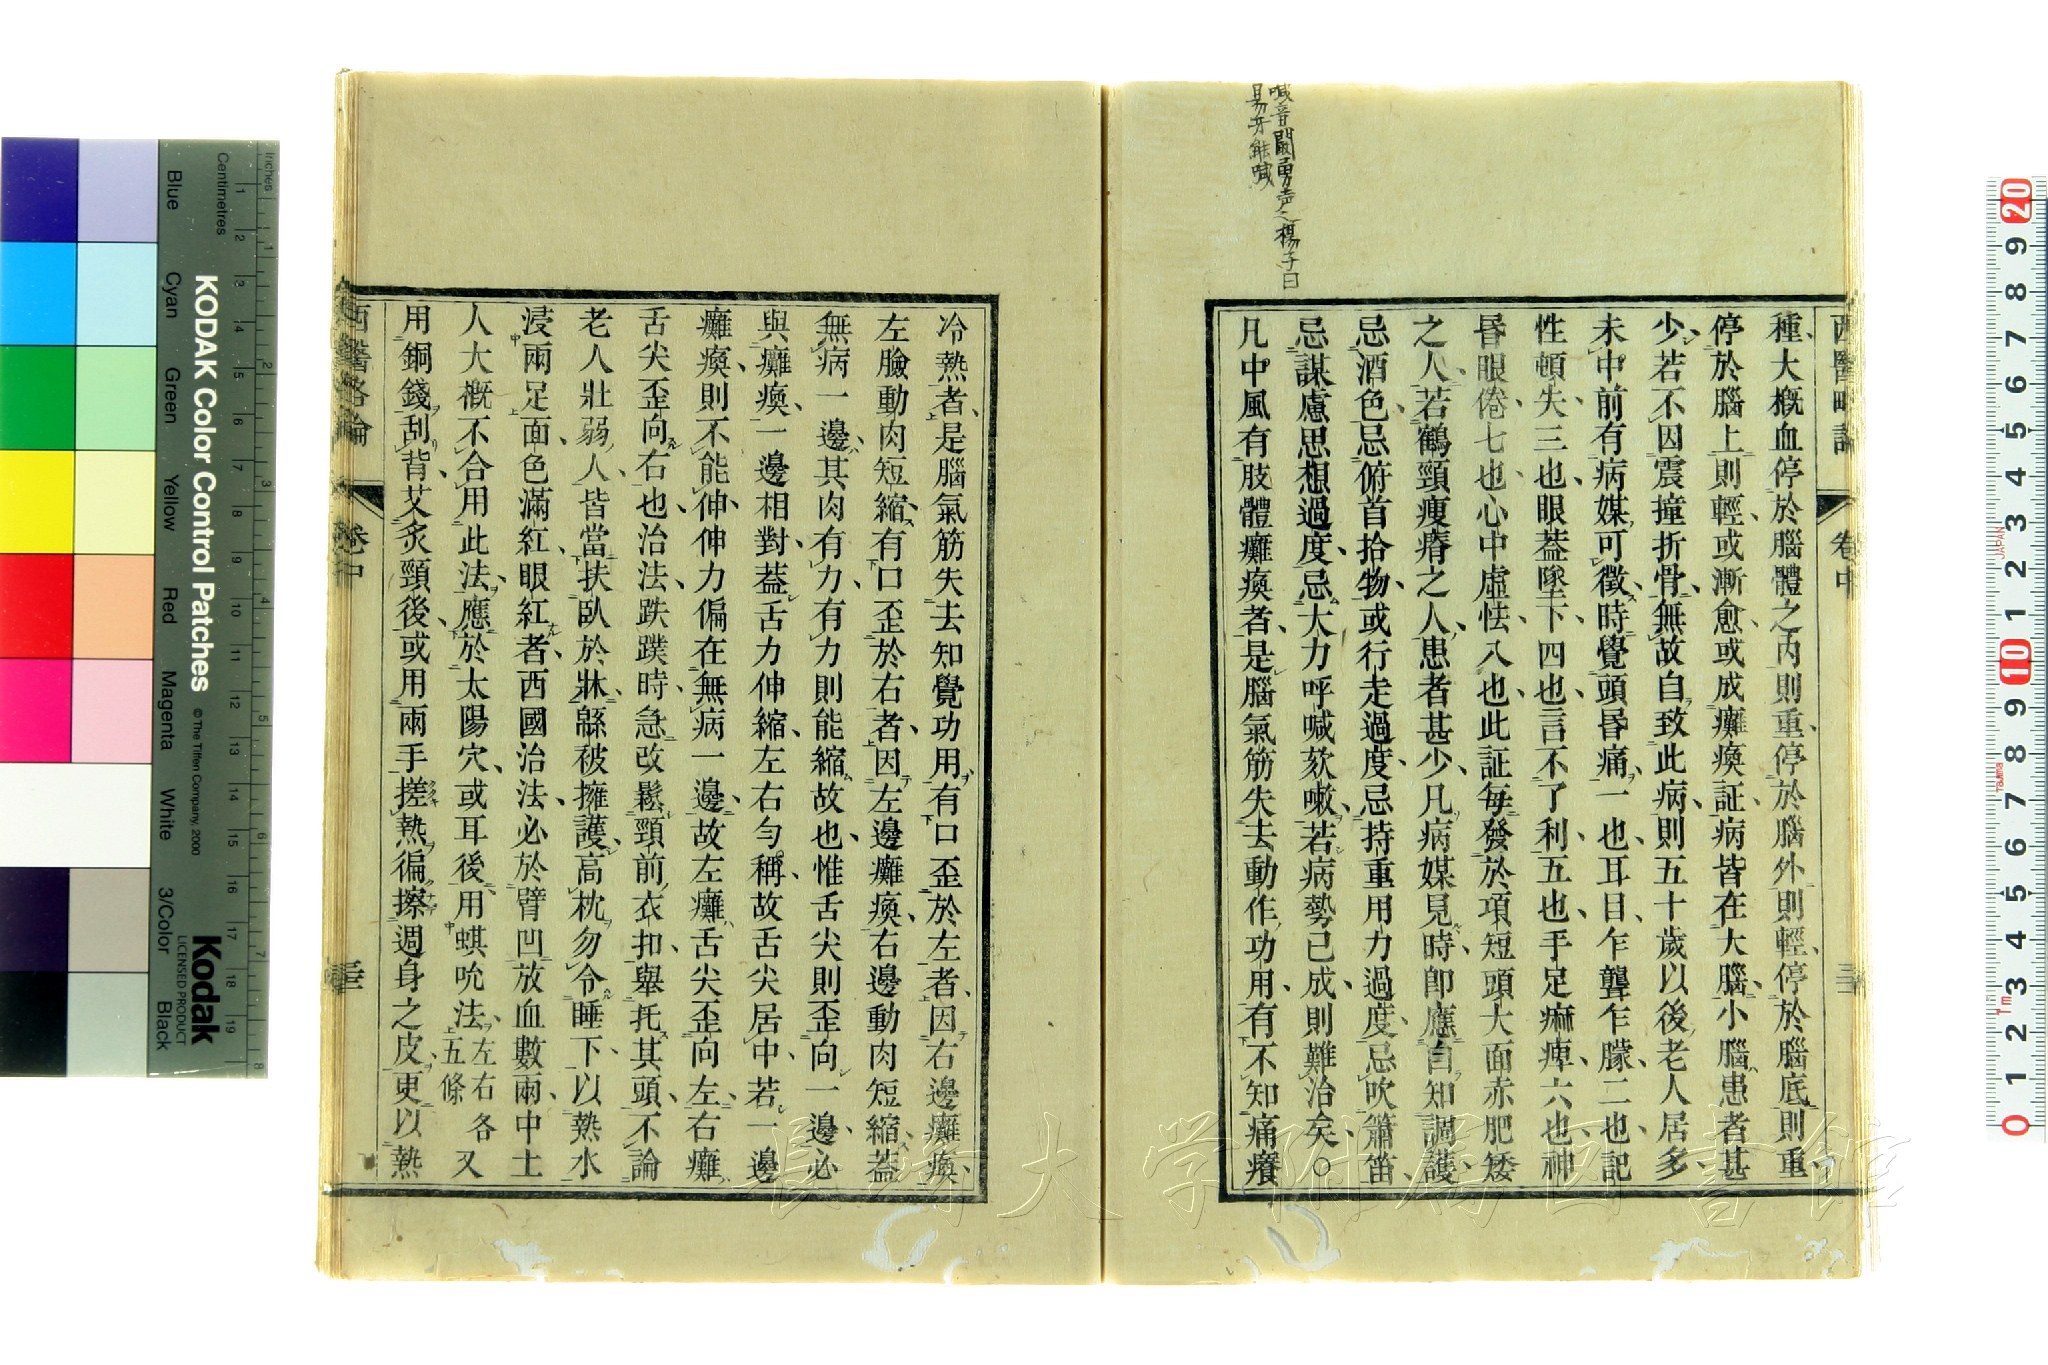 喊音闞勇声之楊子曰
易牙能喊
西醫略論
卷中
種大概血停於腦體之內則重停於腦外則輕停於腦底則重
停於腦上則輕或漸愈或成癱瘓証病皆在大腦小腦患者甚
少若不因震撞折骨無故自致此病則五十歲以後老人居多
未中前有病媒可徵時覺頭昬痛一也耳目乍聾乍朦二也記
性頓失三也眼葢墜下四也言不了利五也手足痲痺六也神
昬眼倦七也心中虛怯八也此証每發於項短頭大面赤肥矮
之人若鶴頸瘦瘠之人患者甚少凡病媒見時卽應自知調護
忌酒色忌俯首拾物或行走過度忌持重用力過度忌吹簫笛
忌謀慮思想過度忌大力呼喊欬嗽若病勢已成則難治矣○
凡中風有肢體癱瘓者是腦氣筋失去動作功用有不知痛癢
冷熱者是腦氣筋失去知覺功用有口歪於左者因右邊癱瘓
左臉動肉短縮有口歪於右者因左邊癱瘓右邊動肉短縮葢
無病一邊其肉有力有力則能縮故也惟舌尖則歪向一邊必
與癱瘓一邊相對葢舌力伸縮左右勻稱故舌尖居中若一邊
癱瘓則不能伸伸力偏在無病一邊故左癱舌尖歪向左右癱
舌尖歪向右也治法跌蹼時急改鬆頸前衣扣舉托其頭不論
老人壯弱人皆當扶臥於牀緜被擁護高枕勿令睡下以熱水
浸兩足面色滿紅眼紅者西國治法必於臂凹放血數兩中土
人大概不合用此法應於太陽穴或耳後用蜞吮法左右各五條又
用銅錢刮背艾炙頸後或用兩手搓熱徧擦週身之皮更以熱
西醫略論
卷中